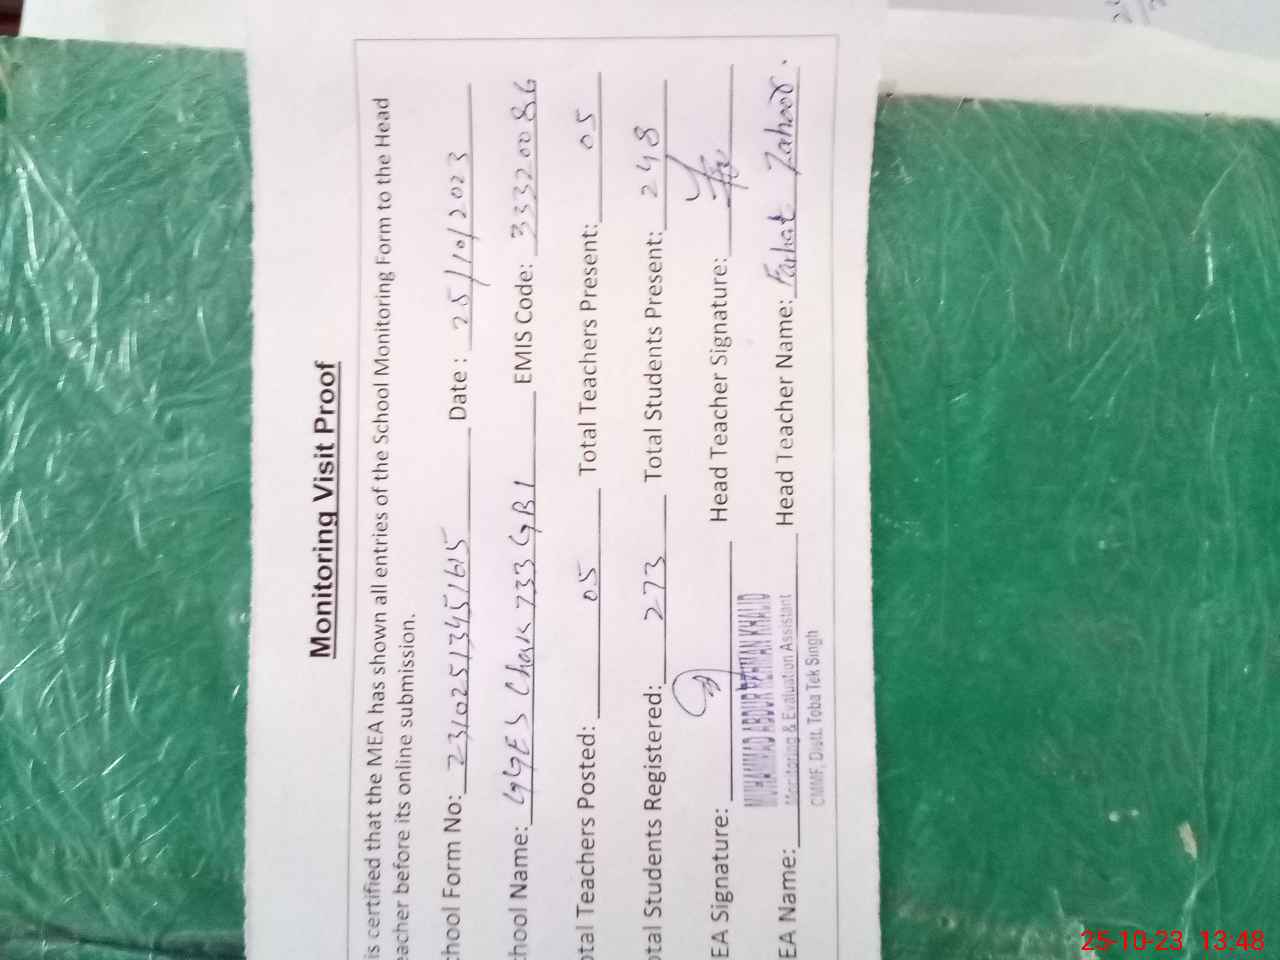 Monitoring Visit Proof
is certified that the MEA has shown all entries of the School Monitoring Form to the Head
eacher before its online submission.
chool Form No: 23102513451615 Date : 25/10/2023
chool Name: GGES Chak 733 GB1 EMIS Code: 33320086
otal Teachers Posted: 05 Total Teachers Present: 05
otal Students Registered: 273 Total Students Present: 248
EA Signature: Head Teacher Signature:
MUHAMMAD ABDUR REHMAN KHALID
EA Name: Head Teacher Name: Farhat Zahoor.
Monitoring & Evaluation Assistant
CMMF, Distt. Toba Tek Singh
25-10-23 13:48